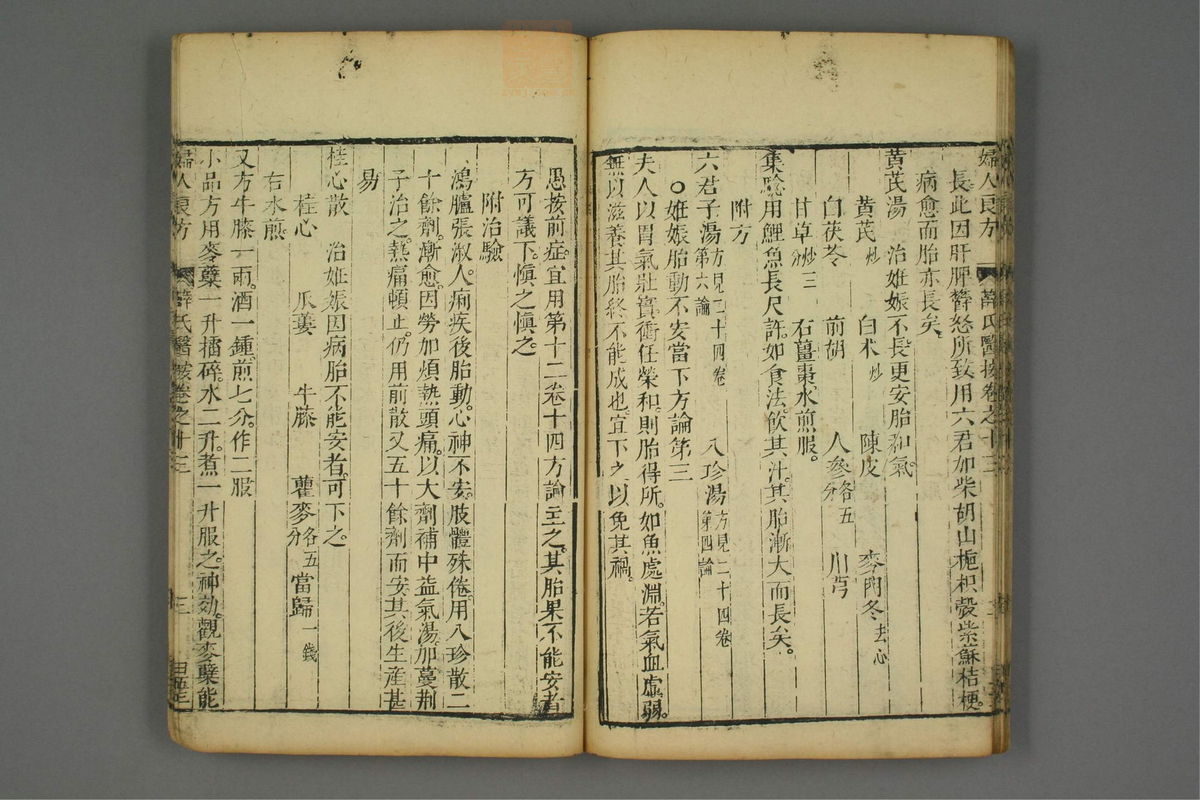 婦人良方　薛氏醫按卷之十三
長此因肝脾鬱怒所致用六君加柴胡山梔枳殼紫蘇桔梗。
病愈而胎亦長矣。
黃芪湯　治姙娠不長更安胎和氣。
黃芪炒　白朮炒　陳皮　麥門冬去心
白茯苓　前胡　人參各五分　川芎
甘草炒三分　右薑棗水煎服。
集驗用鯉魚長尺許。如食法。飲其汁。其胎漸大而長矣。
附方
六君子湯方見二十四卷第六論　八珍湯方見二十四卷第四論
○姙娠胎動不安當下方論第三
夫人以胃氣壯實衝任榮和。則胎得所。如魚處淵。若氣血虛弱。
無以滋養其胎終不能成也。宜下之以免其禍。
愚按前症。宜用第十二卷十四方論主之。其胎果不能安者
方可議下。慎之慎之。
附治驗
鴻臚張淑人。痢疾後胎動。心神不安。肢體殊倦。用八珍散二
十餘劑漸愈。因勞加煩熱頭痛。以大劑補中益氣湯。加蔓荆
子治之。熱痛頓止。仍用前散又五十餘劑而安其後生產甚
易
桂心散　治姙娠因病胎不能安者。可下之。
桂心　瓜蔞　牛膝　瞿麥各五分　當歸一錢
右水煎
又方牛膝一兩。酒一鍾。煎七分。作二服
小品方用麥櫱一升擂碎。水二升。煮一升服之。神效。觀麥櫱能
婦人良方　薛氏醫按卷之十三　三